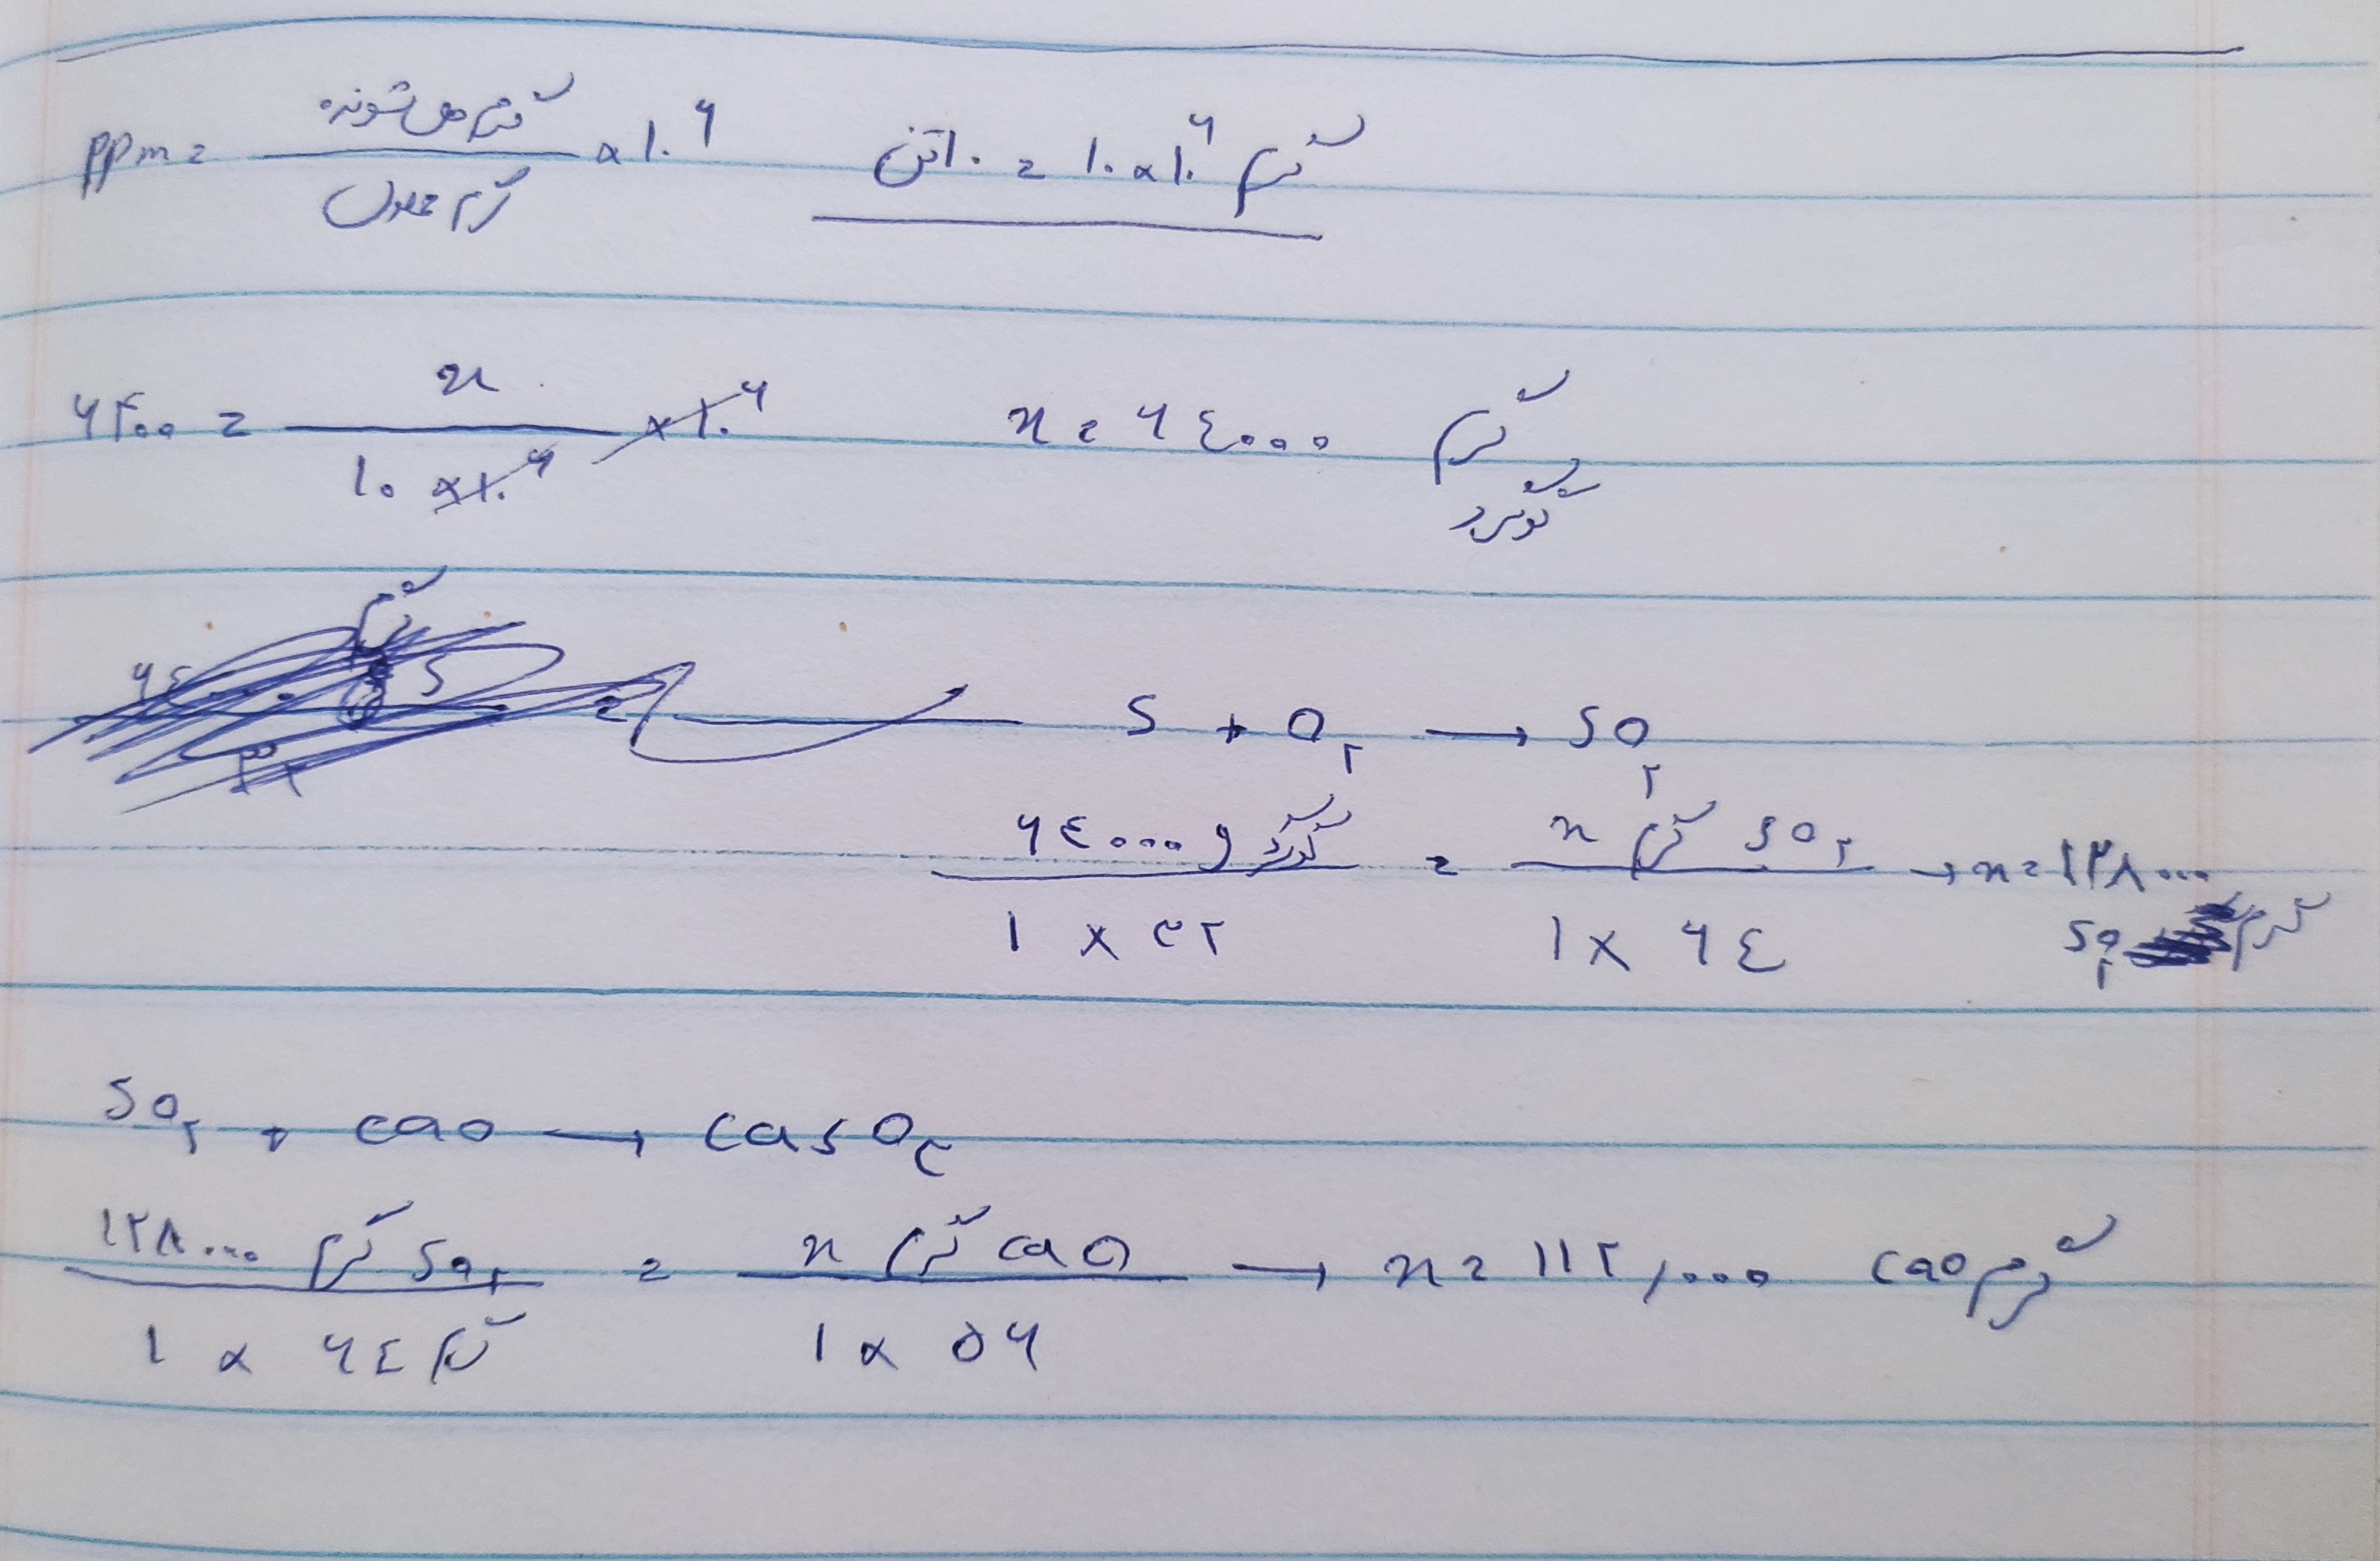 ppm = گرم حل شونده / گرم محلول × ۱۰^۶    ۱۰ تن = ۱۰ × ۱۰^۶ گرم
۶۴۰۰ = x / ۱۰ × ۱۰^۶ × ۱۰^۶    x = ۶۴۰۰۰ گرم
گوگرد
S + O₂ → SO₂
۶۴۰۰۰ و گوگرد / ۱ × ۳۲ = x گرم SO₂ / ۱ × ۶۴ → x = ۱۲۸۰۰۰ گرم SO₂
SO₂ + CaO → CaSO₃
۱۲۸۰۰۰ گرم SO₂ / ۱ × ۶۴ گرم = x گرم CaO / ۱ × ۵۶ → x = ۱۱۲,۰۰۰ گرم CaO